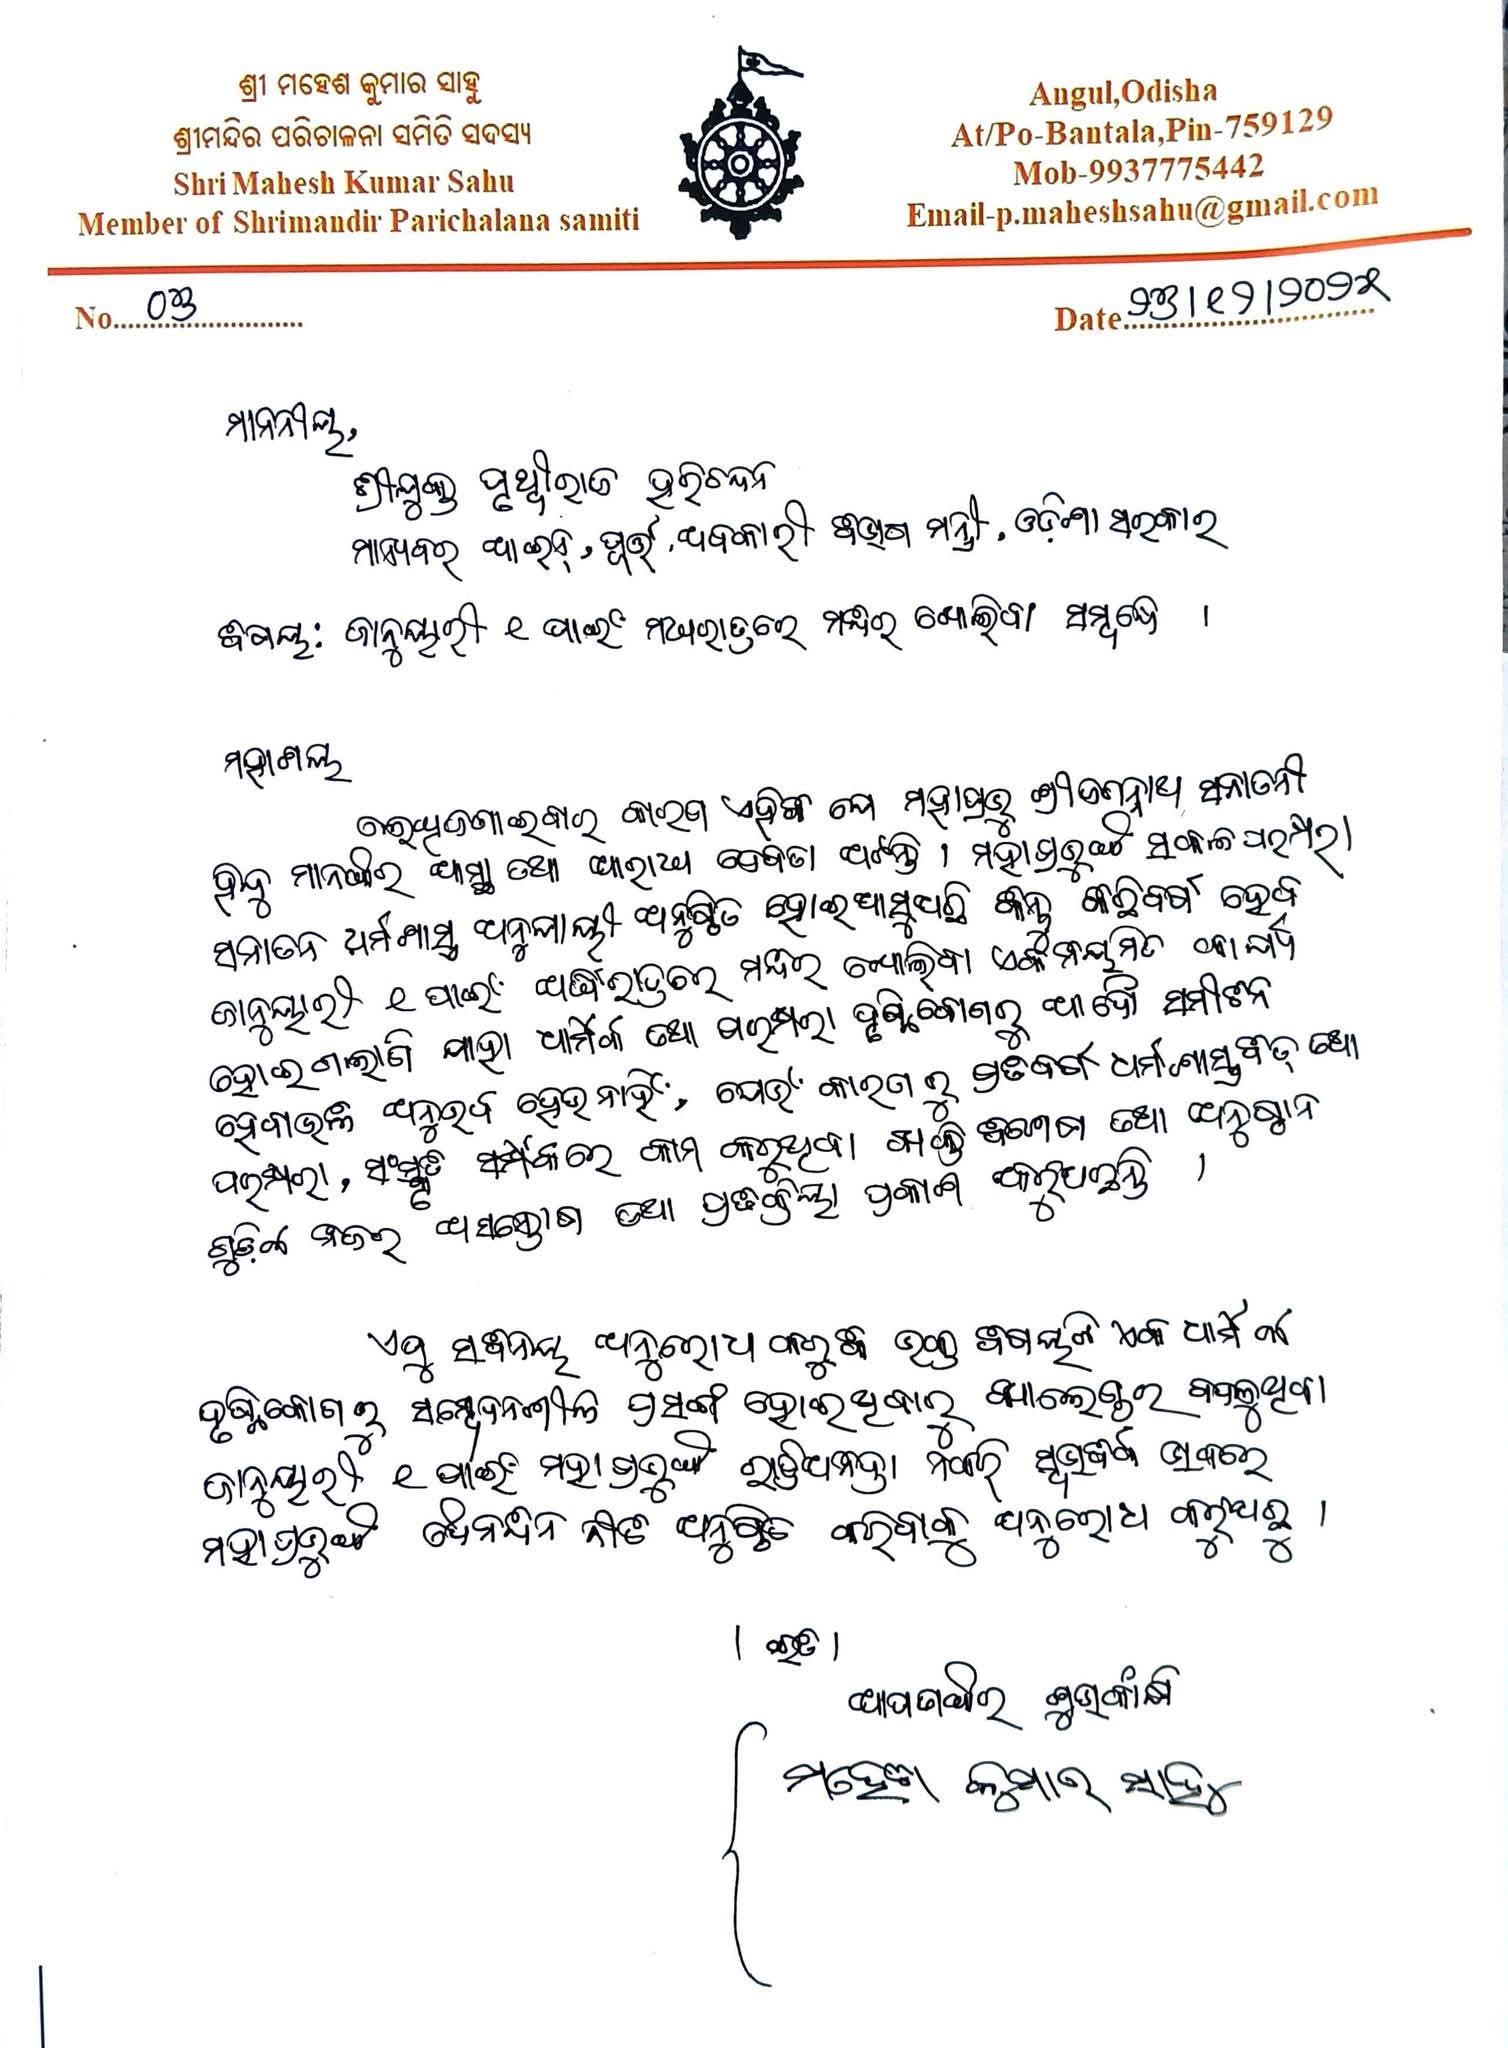 ଶ୍ରୀ ମହେଶ କୁମାର ସାହୁ
ଶ୍ରୀମନ୍ଦିର ପରିଚାଳନା ସମିତି ସଦସ୍ୟ
Shri Mahesh Kumar Sahu
Member of Shrimandir Parichalana samiti
Angul,Odisha
At/Po-Bantala,Pin-759129
Mob-9937775442
Email-p.maheshsahu@gmail.com
No. ୦୩
Date ୨୩।୧୨।୨୦୨୫
ମାନନୀୟ,
ଶ୍ରୀଯୁକ୍ତ ପୃଥ୍ୱୀରାଜ ହରିଚନ୍ଦନ
ମାନ୍ୟବର ଆଇନ୍, ପୂର୍ତ୍ତ, ଅବକାରୀ ବିଭାଗ ମନ୍ତ୍ରୀ, ଓଡ଼ିଶା ସରକାର
ବିଷୟ: ଜାନୁୟାରୀ ୧ ପାଇଁ ମଧ୍ୟରାତ୍ରରେ ମନ୍ଦିର ଖୋଲିବା ସମ୍ବନ୍ଧେ ।
ମହାଶୟ
କାରଣ ଏହିକି ଯେ ମହାପ୍ରଭୁ ଶ୍ରୀଜଗନ୍ନାଥ ସନାତନୀ
ହିନ୍ଦୁ ମାନଙ୍କର ଆସ୍ଥା ତଥା ଆରାଧ୍ୟ ଦେବତା ଅଟନ୍ତି । ମହାପ୍ରଭୁଙ୍କ ସକଳ ପରମ୍ପରା
ସନାତନ ଧର୍ମଶାସ୍ତ୍ର ଅନୁଯାୟୀ ଅନୁଷ୍ଠିତ ହୋଇଆସୁଅଛି କିନ୍ତୁ କିଛିବର୍ଷ ହେବ
ଜାନୁୟାରୀ ୧ ପାଇଁ ଅର୍ଦ୍ଧରାତ୍ରରେ ମନ୍ଦିର ଖୋଲିବା ଏକ ନିୟମିତ କାର୍ଯ୍ୟ
ହୋଇଗଲାଣି ଯାହା ଧାର୍ମିକ ତଥା ପରମ୍ପରା ଦୃଷ୍ଟିକୋଣରୁ ଆଦୌ ସମୀଚୀନ
ହେବାଭଳି ଅନୁଭବ ହେଉନାହିଁ, ଯେଉଁ କାରଣରୁ ପ୍ରତିବର୍ଷ ଧର୍ମଶାସ୍ତ୍ରବିତ୍ ତଥା
ପରମ୍ପରା, ସଂସ୍କୃତି ସମ୍ପର୍କରେ କାମ କରୁଥିବା ବ୍ୟକ୍ତି ବିଶେଷ ତଥା ଅନୁଷ୍ଠାନ
ଗୁଡ଼ିକ ନିଜର ଅସନ୍ତୋଷ ତଥା ପ୍ରତିକ୍ରିୟା ପ୍ରକାଶ କରୁଅଛନ୍ତି ।
ଏଣୁ ସବିନୟ ଅନୁରୋଧ କରୁଛି ଉକ୍ତ ବିଷୟଟି ଏକ ଧାର୍ମିକ
ଦୃଷ୍ଟିକୋଣରୁ ସମ୍ବେଦନଶୀଳ ପ୍ରସଙ୍ଗ ହୋଇଥିବାରୁ କ୍ୟାଲେଣ୍ଡର ବଦଳୁଥିବା
ଜାନୁୟାରୀ ୧ ପାଇଁ ମହାପ୍ରଭୁଙ୍କ ରାତ୍ରିଅନିଦ୍ରା ନକରି ସ୍ୱାଭାବିକ ଭାବରେ
ମହାପ୍ରଭୁଙ୍କ ଦୈନନ୍ଦିନ ନୀତି ଅନୁଷ୍ଠିତ କରିବାକୁ ଅନୁରୋଧ କରୁଅଛୁ ।
। ଇତି ।
ଆପଣଙ୍କର ଶୁଭକାଂକ୍ଷୀ
ମହେଶ କୁମାର ସାହୁ